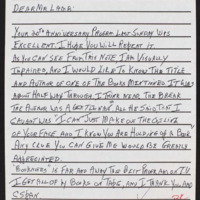 DEAR MR. LAMB:
YOUR 20TH ANNIVERSARY PROGRAM LAST SUNDAY WAS
EXCELLENT. I HOPE YOU WILL REPEAT IT.
AS YOU CAN SEE FROM THIS NOTE, I AM VISUALLY
IMPAIRED, AND I WOULD LIKE TO KNOW THE TITLE
AND AUTHOR OF ONE OF THE BOOKS MENTIONED. IT WAS
ABOUT HALF WAY THROUGH I THINK NEAR THE BREAK
THE AUTHOR WAS A ALL HE SAID THAT I
CAUGHT WAS "I CAN JUST MAKE OUT THE OUTLINE
OF YOUR FACE AND I KNOW YOU ARE HOLDING UP A BOOK"
ANY CLUE YOU CAN GIVE ME WOULD BE GREATLY
APPRECIATED.
"BOOKNOTES" IS FAR AND AWAY THE BEST PROGRAM ON TV.
I GET ALL OF MY BOOKS ON TAPE, AND I THANK YOU AND
CSPAN.